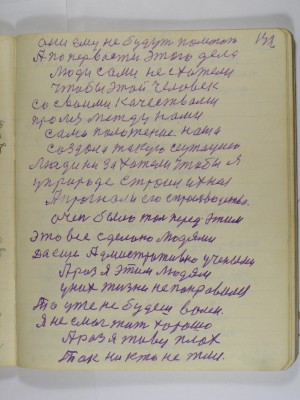 они ему не будут помогать 152
А по первости этого дела
Люди сами не схотели
Чтобы этой человек
со своими качествами
промеж между нами
само положение наше
создало такую ситуацию
Люди ни захотели чтобы я
у природе строил ихнае
А прогнали с производства.
очен было тои перед этим
Это все сделано людями
да еще Административно учеными
А раз я этим людям
у них жизни не понравился
То уже не будет воли.
Я не смог жит хорошо
А раз я живу плох
Так никто не жил.